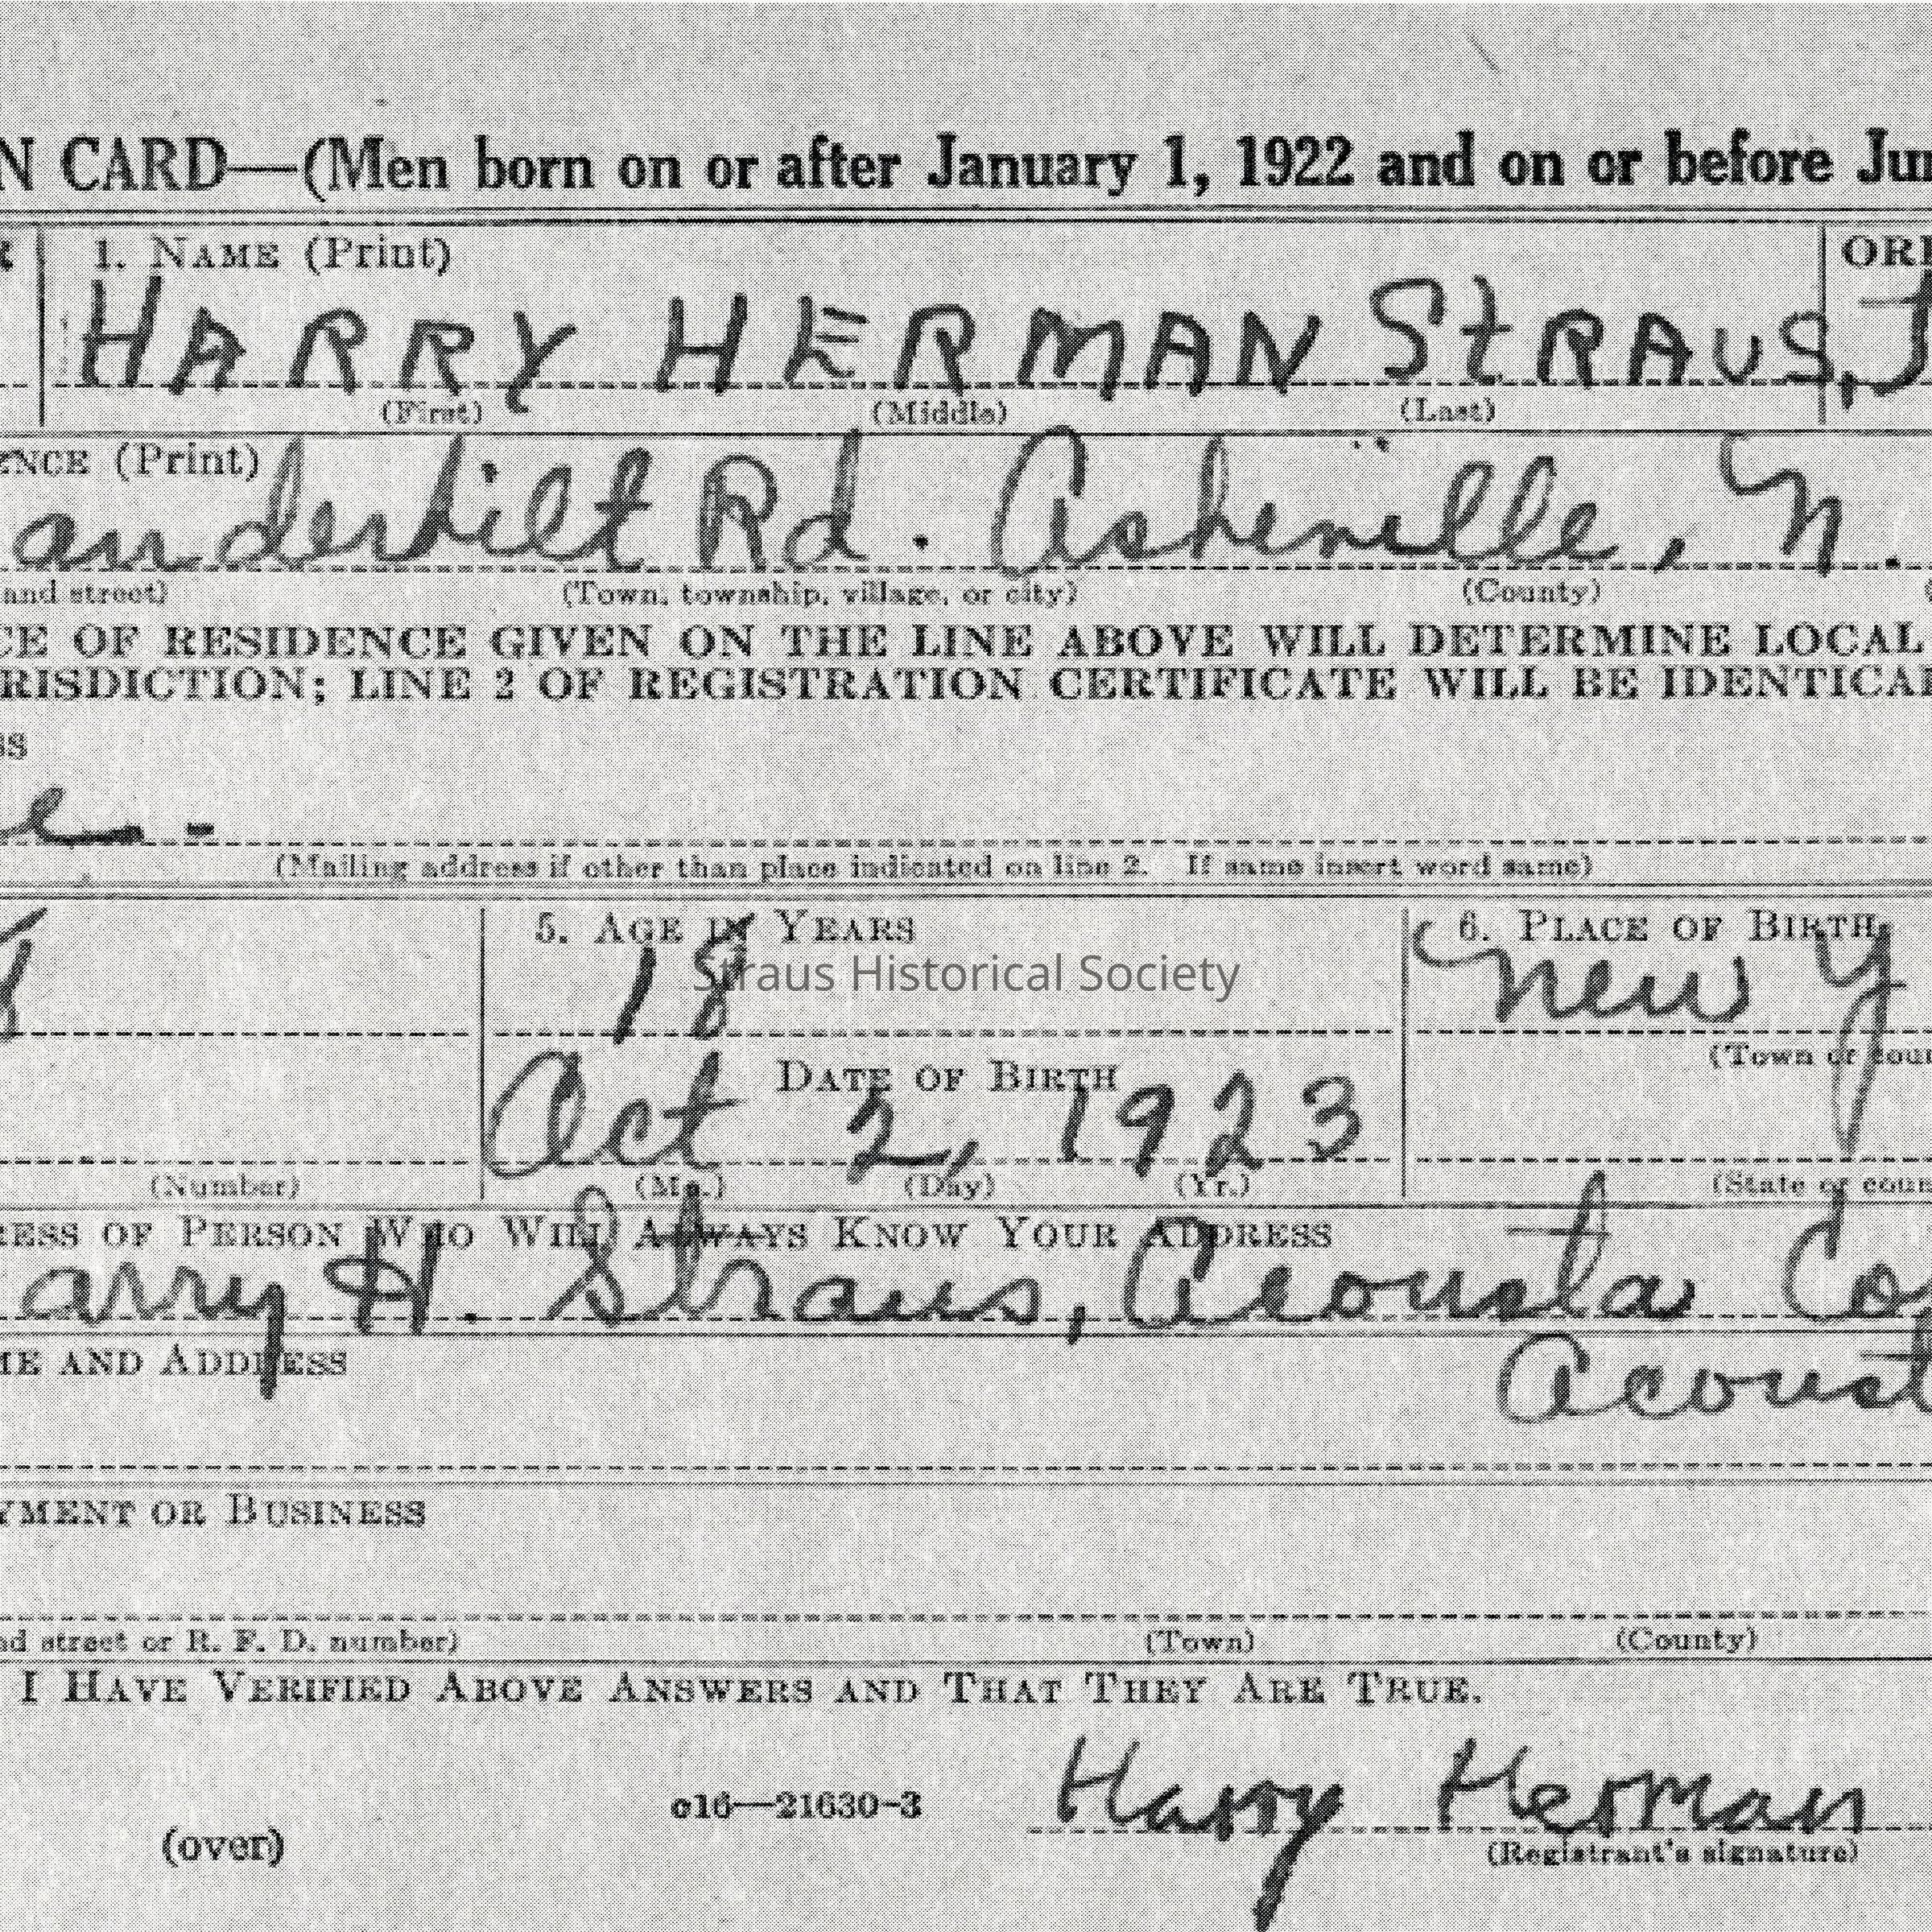 N CARD—(Men born on or after January 1, 1922 and on or before Jun
R 1. NAME (Print) ORD
HARRY HERMAN StRAUS, J
(First) (Middle) (Last)
ENCE (Print)
anderbilt Rd. Asheville, N.
and street) (Town, township, village, or city) (County)
CE OF RESIDENCE GIVEN ON THE LINE ABOVE WILL DETERMINE LOCAL
RISDICTION; LINE 2 OF REGISTRATION CERTIFICATE WILL BE IDENTICAL
SS
e - -
(Mailing address if other than place indicated on line 2. If same insert word same)
5. AGE IN YEARS 6. PLACE OF BIRTH
18 New Y
Straus Historical Society
(Town or coun
DATE OF BIRTH
Oct 2, 1923
(Number) (Mo.) (Day) (Yr.) (State or coun
RESS OF PERSON WHO WILL ALWAYS KNOW YOUR ADDRESS
arry H. Straus, Acousta Co
ME AND ADDRESS
Acoust
YMENT OR BUSINESS
nd street or R. F. D. number) (Town) (County)
I HAVE VERIFIED ABOVE ANSWERS AND THAT THEY ARE TRUE.
Harry Herman
c16—21630-3
(Registrant's signature)
(over)